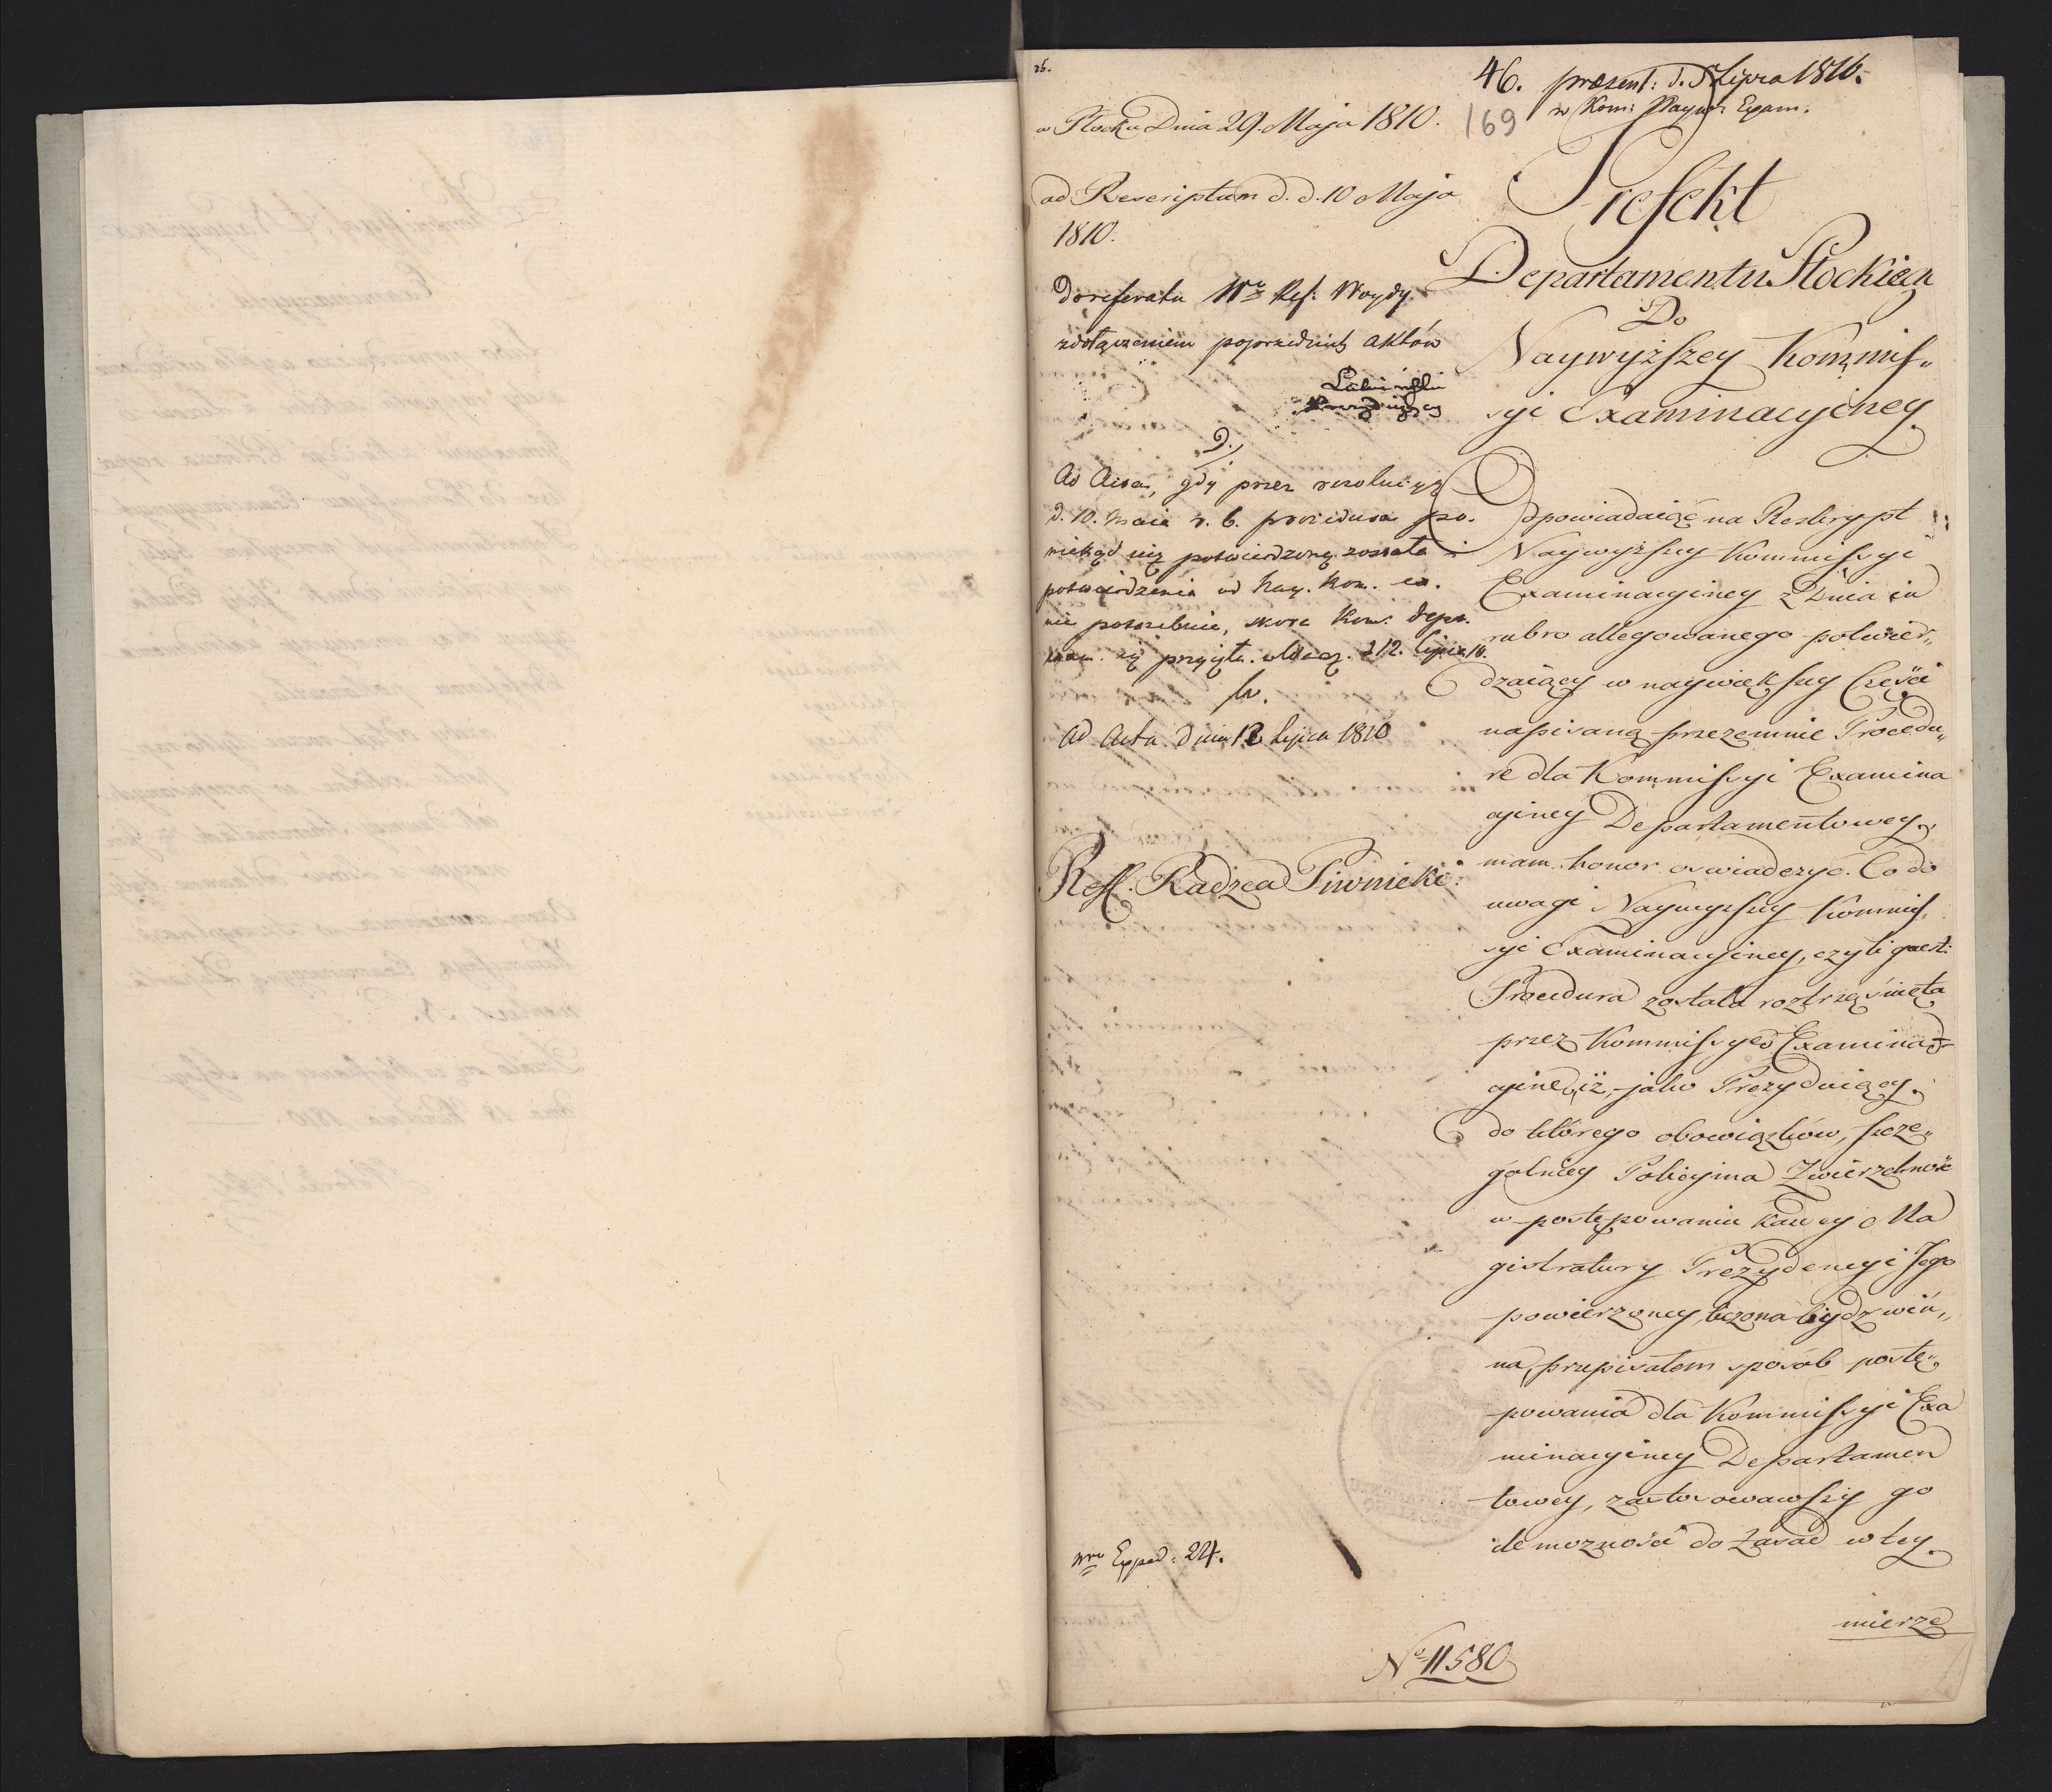 26.
46. præsent: d. 5 Lipca 1810.
w Kom: Naywż: Exam.
169
w Płocku Dnia 29. Maja 1810.
ad Rescriptum d. d. 10 Maja
1810.
do referatu Wo Ref: Woydy
z dołączeniem poprzednich aktów
Prezydujący
Ad Acta, gdy przez rezolucyą
d. 10. Maia r. b. procedura po-
niekąd iuż potwierdzoną została i
potwierdzenia od Nay. Kom. ex.
nie potrzebuie, skoro Kom. Depar.
exam. ią przyięła. d 12. Lipca 10.
Ad Acta dnia 12 Lipca 1810
Reff. Radzca Piwnicki.
Prefekt
Departamentu Płockiego
Do
Naywyższey Kommis„
syi Examinacyiney.
Odpowiadaiąc na Reskrypt
Naywyższey Kommissyi
Examinacyiney z Dnia in
rubro allegowanego potwier„
dzaiący w naywiększey Części
napisaną przezemnie Procedu„
rę dla Kommissyi Examina
cyiney Departamentowey,
mam honor oswiadczyć. Co do
uwagi Naywyzszey Kommis„
syi Examinacyiney, czyli quest:
Procedura została roztrząśnięta
przez Kommissyę Examina-
cyiną, iż, jako Prezyduiący,
do którego obowiązków, szcze„
gólniey Policyina Zwierzchność
w postępowaniu każdey Ma
gistratury Prezydencyi Jego
powierzoney, liczona bydź win„
na, przepisałem sposób postę„
powania dla Kommissyi Exa
minacyiney Departamen
towey, zastosowawszy go
ile mozności do Zasad w tey
mierze
Nro Exped: 224.
No 11580